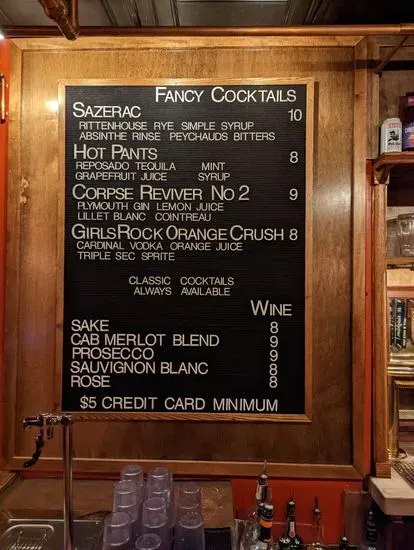 FANCY COCKTAILS
SAZERAC 10
RITTENHOUSE RYE SIMPLE SYRUP
ABSINTHE RINSE PEYCHAUDS BITTERS
HOT PANTS 8
REPOSADO TEQUILA MINT
GRAPEFRUIT JUICE SYRUP
CORPSE REVIVER NO 2 9
PLYMOUTH GIN LEMON JUICE
LILLET BLANC COINTREAU
GIRLSROCK ORANGE CRUSH 8
CARDINAL VODKA ORANGE JUICE
TRIPLE SEC SPRITE
CLASSIC COCKTAILS
ALWAYS AVAILABLE
WINE
SAKE 8
CAB MERLOT BLEND 9
PROSECCO 9
SAUVIGNON BLANC 8
ROSE 8
$5 CREDIT CARD MINIMUM